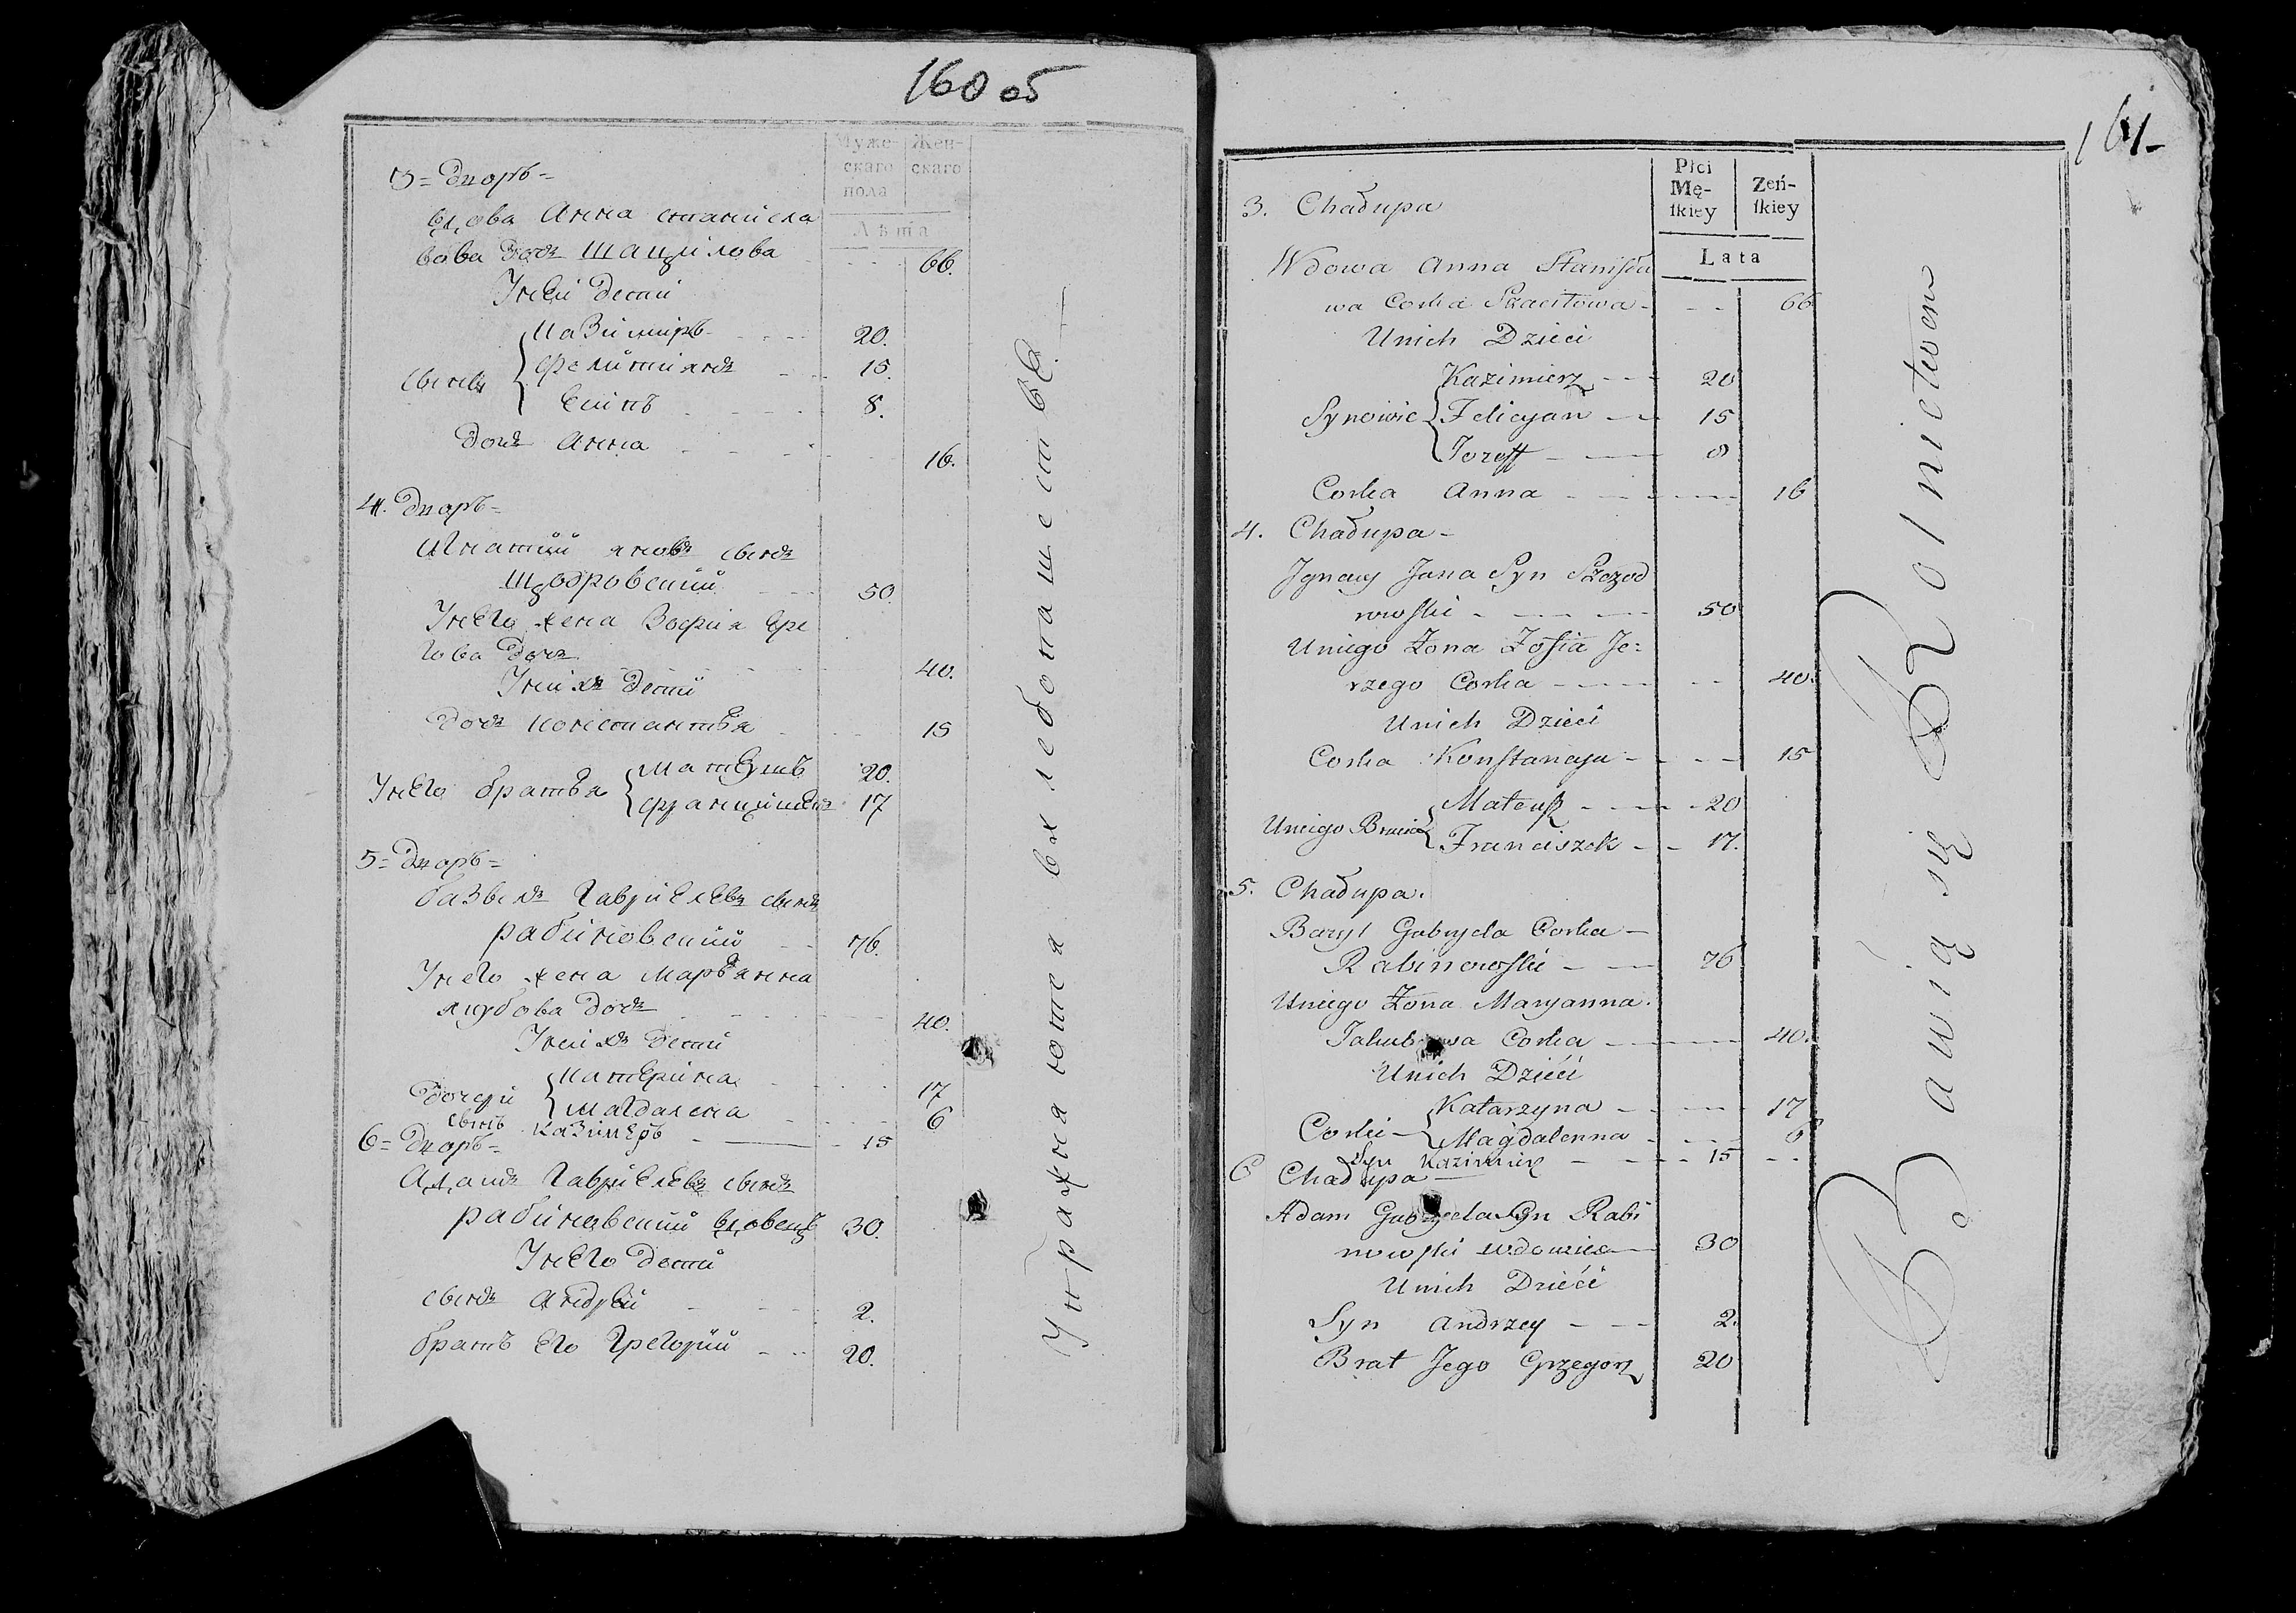 160 об
Муже-
скаго
пола
Жен-
скаго
Лѣта
3 = Дворъ =
вдова Анна станисла
вова дочь Шацилова 66.
У ней дети
Казимиръ 20.
сыновья Фелитиянъ 15.
Есипъ 8.
дочь Анна 16.
4. Дворъ =
Игнатий яновъ сынъ
Щодровский 50.
У него жена Зофия Юре
гова дочь 40.
У них дети
дочь Константыя 15
У него братья Матеушъ 20.
Францишекъ 17
5 = Дворъ =
базыль Гаврилевъ сынъ
рабиновский 76.
У него жена Марьянна
якубова дочь 40.
У них дети
Катерина 17
дочери Магдалена 6
сынъ Казимеръ 15
6 = Дворъ =
Адамъ Гаврилевъ сынъ
рабиновский вдовецъ 30.
У него дети
сынъ Андрей 2.
братъ его Грегорий 20.
Упражняются в хлебопашестве.
161
Płci
Mę-
ſkiey
Zeń-
ſkiey
Lata
3. Chałupa
Wdowa Anna Staniſła
wa Corka Szaciłowa 66
Unich Dzieci
Kazimierz 20
Synowie Felicyan 15
Jozeff 8
Corka Anna 16
4. Chałupa
Jgnacy Jana Syn Szczod
rowſki 50
Uniego Żona Zofia Je=
rzego Corka 40.
Unich Dzieci
Corka Konſtancya 15
Mateuſz 20
Uniego Bracia Franciszek 17.
5. Chałupa.
Bazyl Gabryela Corka
Rabinowſki 76
Uniego Żona Maryanna.
Jakubowa Corka 40.
Unich Dzieci
Katarzyna 17
Corki Magdalenna 6
Syn Kazimierz 15
6 Chałupa
Adam Gabryela Syn Rabi
nowſki wdowiec 30
Unich Dzieci
Syn Andrzey 2.
Brat Jego Grzegorz 20
Bawią się Rolnictwem